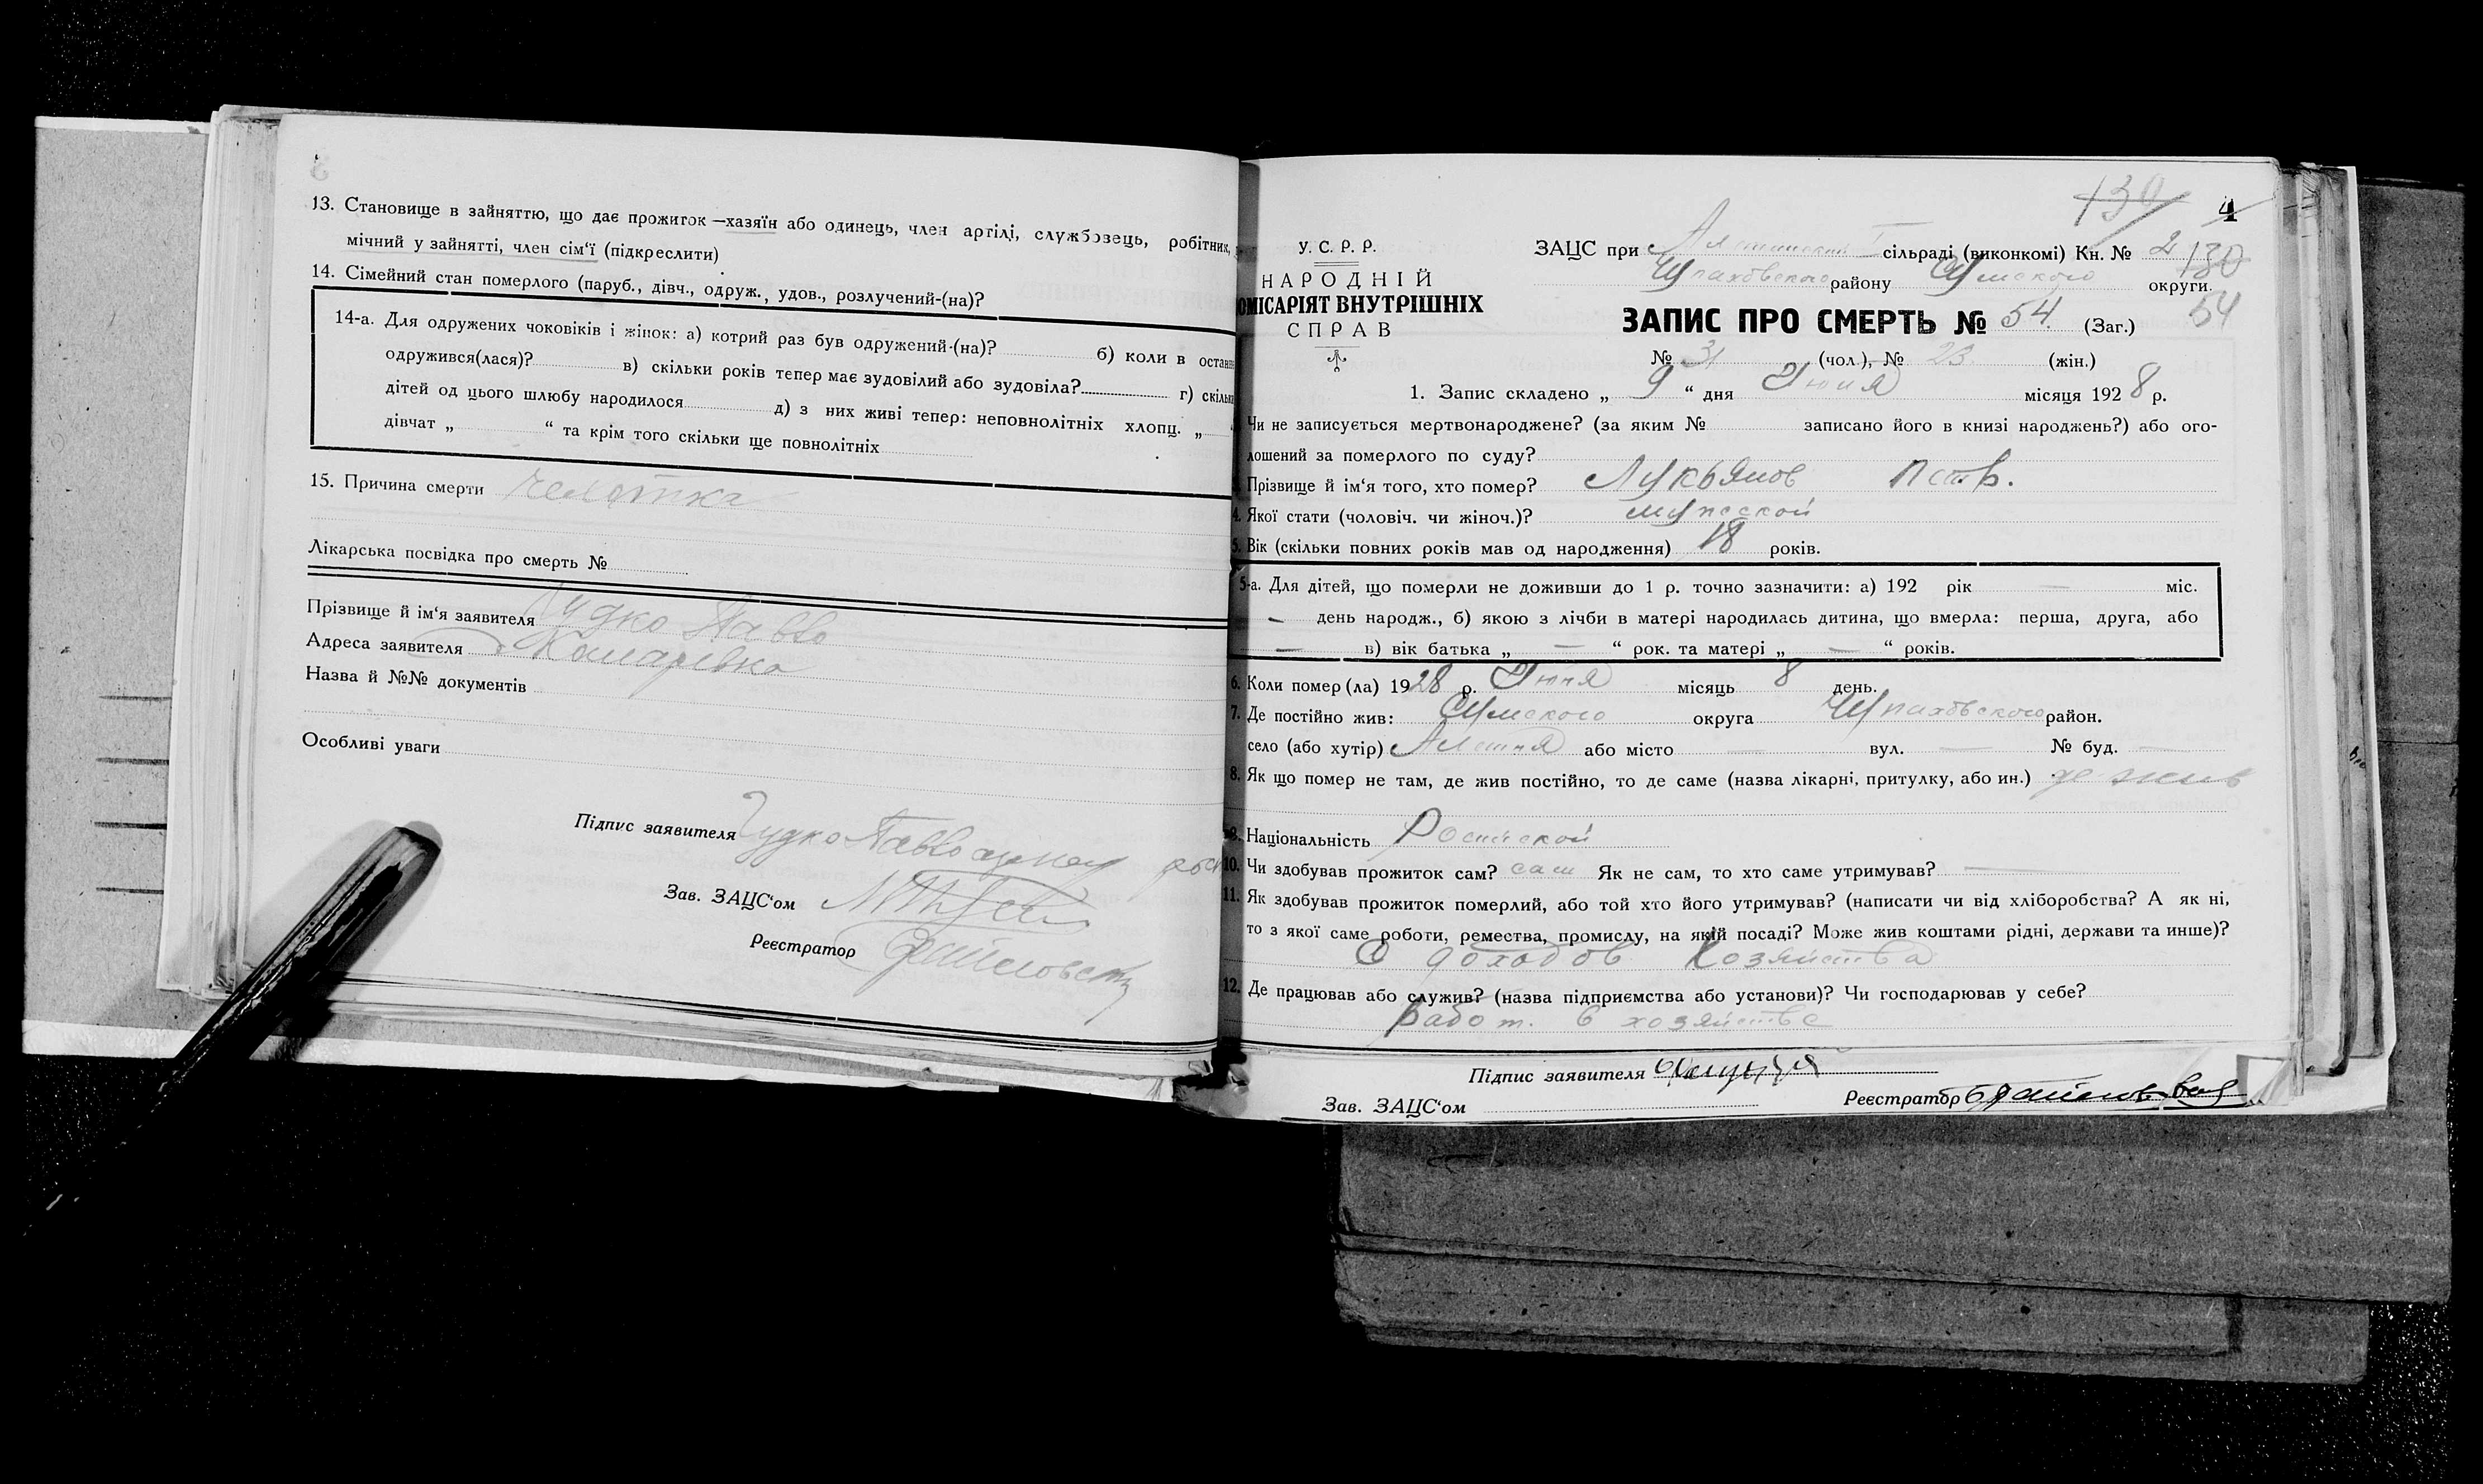 13. Становище в зайняттю, що дає прожиток—хазяїн або одинець, член артілі, службовець, робітник,
мічний у зайнятті, член сім‘ї (підкреслити)
14. Сімейний стан померлого (паруб., дівч., одруж., удов., розлучений-(на)?
14-а. Для одружених чоковіків і жінок: а) котрий раз був одружений-(на)? б) коли в останн
одружився(лася)? в) скільки років тепер має зудовілий або зудовіла? г) скільки
дітей од цього шлюбу народилося д) з них живі тепер: неповнолітніх хлопц. „
дівчат „ “ та крім того скільки ще повнолітніх
15. Причина смерти
Лікарська посвідка про смерть №
Прізвище й ім‘я заявителя Гудко Павло
Адреса заявителя Комарівка
Назва й №№ документів
Особливі уваги
Підпис заявителя Гудко Павло
Зав. ЗАЦС‘ом
Реєстратор
130
4
У. С. Р. Р.
НАРОДНІЙ
ОМІСАРІЯТ ВНУТРІШНІХ
СПРАВ
ЗАЦС при сільраді (виконкомі) Кн. № 2
130
району Сумского округи.
ЗАПИС ПРО СМЕРТЬ № 54. (Заг.) 54
№ 31 (чол.), № 23 (жін.)
1. Запис складено „ 9 “ дня Июня місяця 1928 р.
Чи не записується мертвонароджене? (за яким № записано його в книзі народжень?) або ого-
лошений за померлого по суду?
Прізвище й ім‘я того, хто помер? Лукьянов
4. Якої стати (чоловіч. чи жіноч.)?
5. Вік (скільки повних років мав од народження) 18 років.
5-а. Для дітей, що померли не доживши до 1 р. точно зазначити: а) 192 рік — міс.
— день народж., б) якою з лічби в матері народилась дитина, що вмерла: перша, друга, або
— в) вік батька „ — “ рок. та матері „ — “ років.
6. Коли помер(ла) 1928 р. Июня місяць 8 день.
7. Де постійно жив: Сумского округа район.
село (або хутір) або місто — вул. — № буд. —
8. Як що помер не там, де жив постійно, то де саме (назва лікарні, притулку, або ин.) де жив
9. Національність
10. Чи здобував прожиток сам? сам Як не сам, то хто саме утримував? —
11. Як здобував прожиток померлий, або той хто його утримував? (написати чи від хліборобства? А як ні,
то з якої саме роботи, ремества, промислу, на якій посаді? Може жив коштами рідні, держави та инше)?
О доходов Хозяйства
12. Де працював або служив? (назва підприємства або установи)? Чи господарював у себе?
Работ. в хозяйстве
Підпис заявителя
Зав. ЗАЦС‘ом Реєстратор